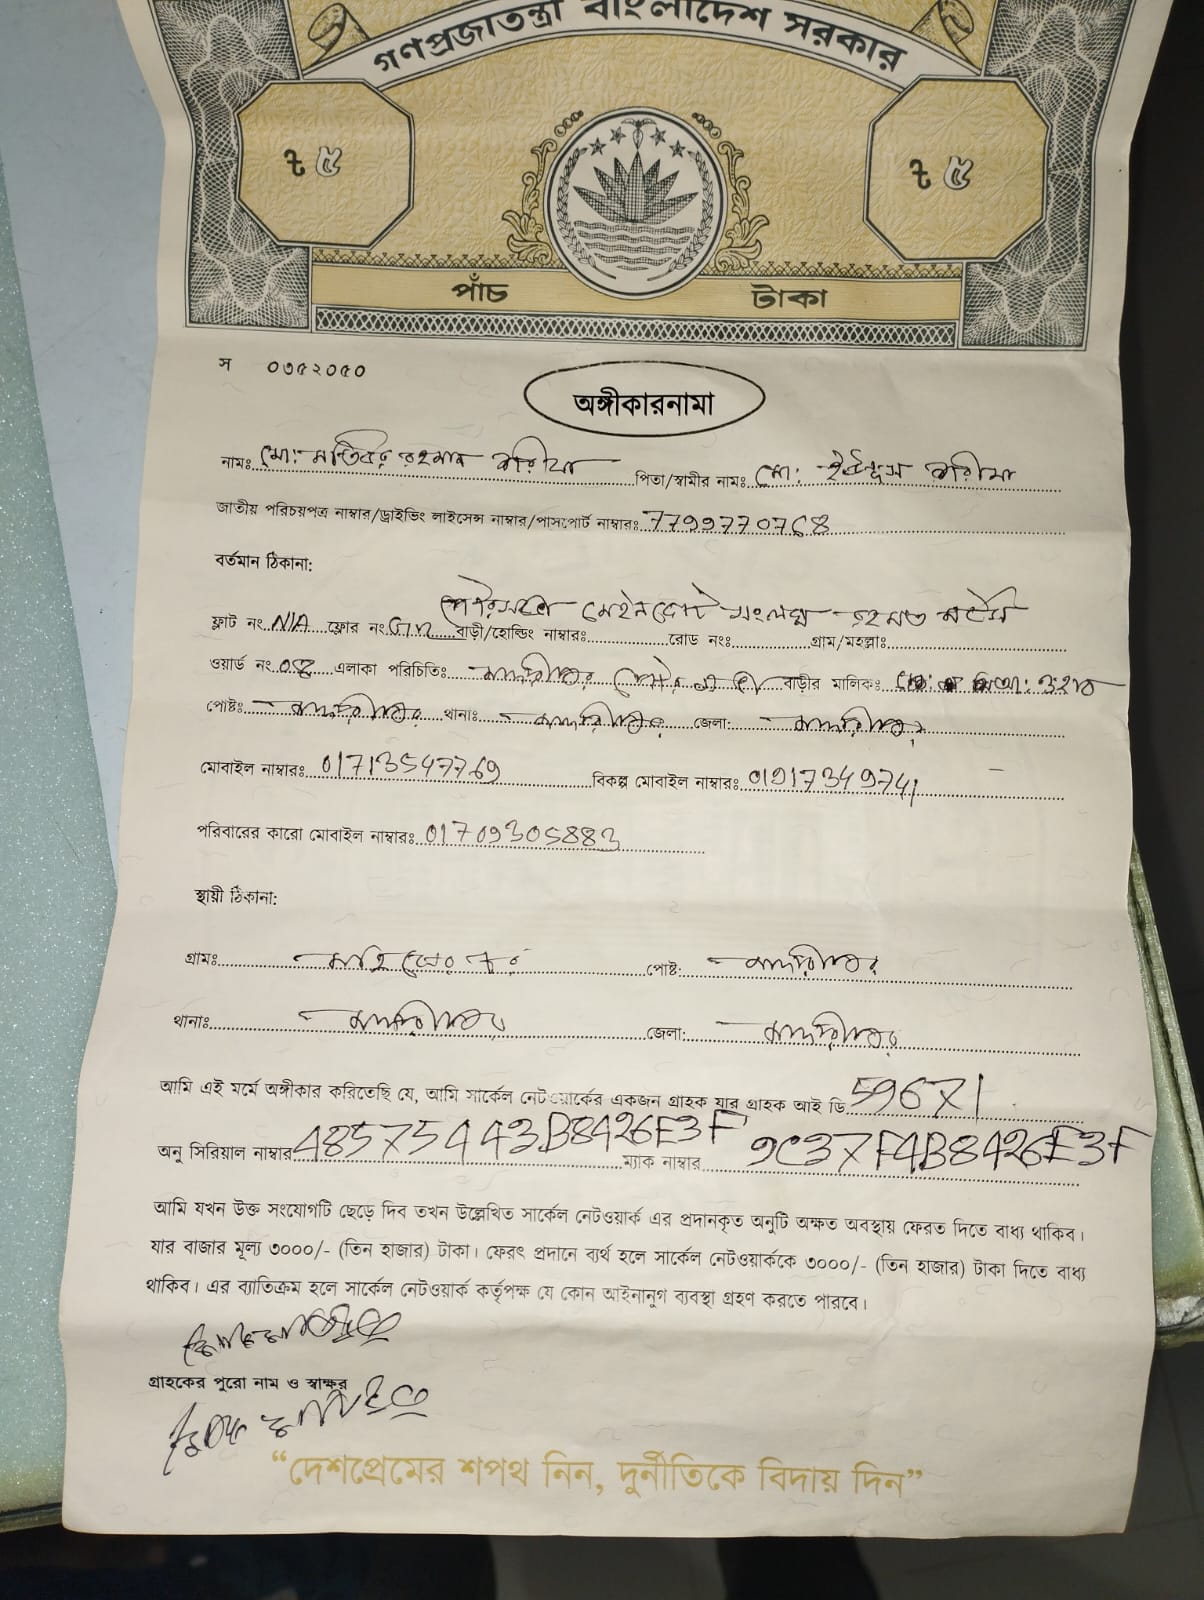 গণপ্রজাতন্ত্রী বাংলাদেশ সরকার
৳ ৫ ৳ ৫
পাঁচ টাকা
স ০৩৫২০৫০
অঙ্গীকারনামা
নামঃ মো: রহমান পিতা/স্বামীর নামঃ মো:
জাতীয় পরিচয়পত্র নাম্বার/ড্রাইভিং লাইসেন্স নাম্বার/পাসপোর্ট নাম্বারঃ 7799770768
বর্তমান ঠিকানা:
মেইন সংলগ্ন
ফ্লাট নং N/A ফ্লোর নং বাড়ী/হোল্ডিং নাম্বারঃ রোড নংঃ গ্রাম/মহল্লাঃ
ওয়ার্ড নং এলাকা পরিচিতিঃ মাদারীপুর বাড়ীর মালিকঃ
পোষ্টঃ মাদারীপুর থানাঃ মাদারীপুর জেলা: মাদারীপুর
মোবাইল নাম্বারঃ 01713547769 বিকল্প মোবাইল নাম্বারঃ
পরিবারের কারো মোবাইল নাম্বারঃ 01709305883
স্থায়ী ঠিকানা:
গ্রামঃ পোষ্ট: মাদারীপুর
থানাঃ মাদারীপুর জেলা: মাদারীপুর
আমি এই মর্মে অঙ্গীকার করিতেছি যে, আমি সার্কেল নেটওয়ার্কের একজন গ্রাহক যার গ্রাহক আই ডি 59671
অনু সিরিয়াল নাম্বার 48575443B8426E3F ম্যাক নাম্বার 9C37F4B8426E3F
আমি যখন উক্ত সংযোগটি ছেড়ে দিব তখন উল্লেখিত সার্কেল নেটওয়ার্ক এর প্রদানকৃত অনুটি অক্ষত অবস্থায় ফেরত দিতে বাধ্য থাকিব।
যার বাজার মূল্য ৩০০০/- (তিন হাজার) টাকা। ফেরৎ প্রদানে ব্যর্থ হলে সার্কেল নেটওয়ার্ককে ৩০০০/- (তিন হাজার) টাকা দিতে বাধ্য
থাকিব। এর ব্যাতিক্রম হলে সার্কেল নেটওয়ার্ক কর্তৃপক্ষ যে কোন আইনানুগ ব্যবস্থা গ্রহণ করতে পারবে।
গ্রাহকের পুরো নাম ও স্বাক্ষর
“দেশপ্রেমের শপথ নিন, দুর্নীতিকে বিদায় দিন”